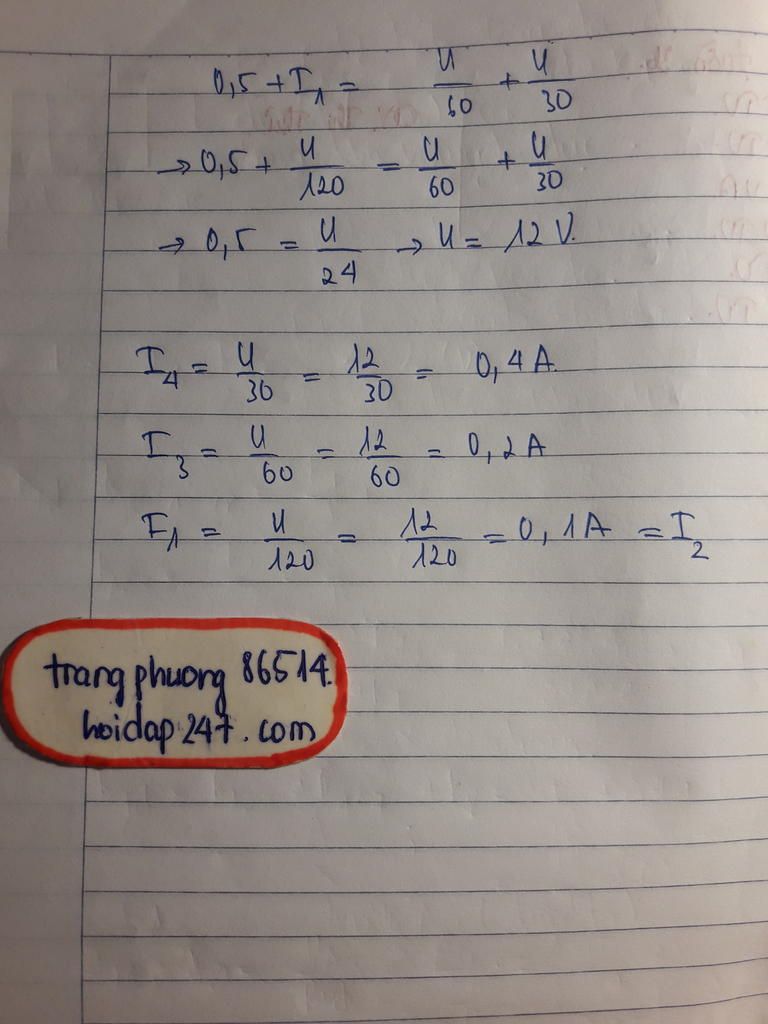 0,5 + I₁ = U/60 + U/30
→ 0,5 + U/120 = U/60 + U/30
→ 0,5 = U/24 → U = 12 V.
I₄ = U/30 = 12/30 = 0,4 A.
I₃ = U/60 = 12/60 = 0,2 A
I₁ = U/120 = 12/120 = 0,1 A = I₂
trangphuong 86514.
hoidap 247 . com